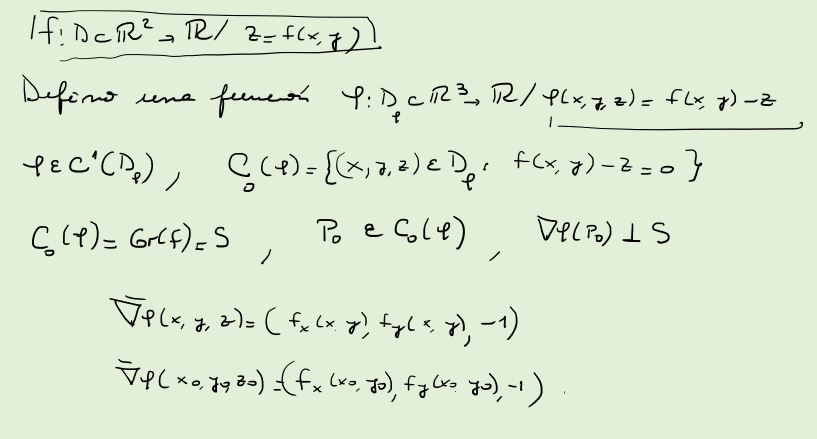 f: D ⊂ ℝ² → ℝ / z = f(x, y)
Defino una función φ: D_φ ⊂ ℝ³ → ℝ / φ(x, y, z) = f(x, y) - z
φ ε C¹(D_φ), C₀(φ) = {(x, y, z) ε D_φ : f(x, y) - z = 0}
C₀(φ) = Gr(f) = S, P₀ ε C₀(φ), ∇φ(P₀) ⊥ S
∇̄φ(x, y, z) = (f_x(x, y), f_y(x, y), -1)
∇̄φ(x₀, y₀, z₀) = (f_x(x₀, y₀), f_y(x₀, y₀), -1).